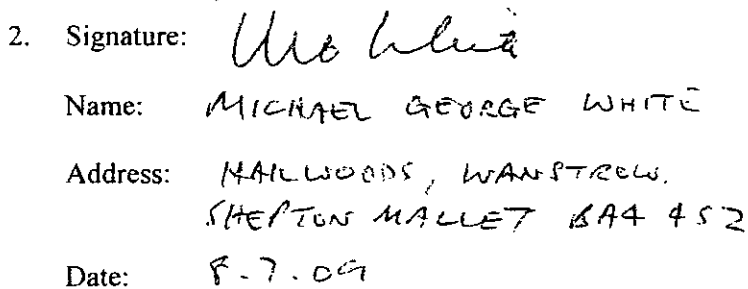 2. Signature:
Name: MICHAEL GEORGE WHITE
Address: HAILWOODS, WANSTROW.
SHEPTON MALLET BA4 4SZ
Date: 8.7.09